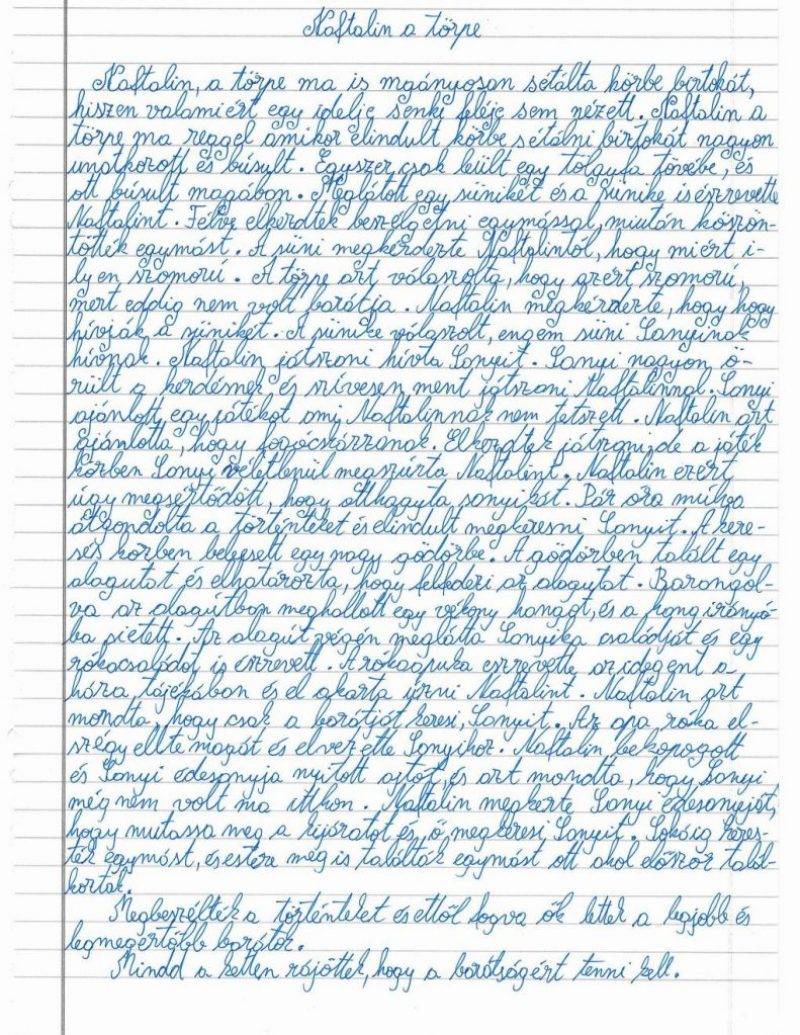 Naftalin a törpe
Naftalin, a törpe ma is mgányosan sétálta körbe birtokát,
hiszen valamiért egy idelje senki feléje sem nézett. Naftalin a
törpe ma reggel amikor elindult körbe sétálni birtokát nagyon
unatkozott és búsult. Egyszer csak leült egy tölgyfa tövébe, és
ott búsult magában. Meglátott egy sünikét és a sünike is észrevette
Naftalint. Félve elkezdtek beszélgetni egymással, miután köszön-
tötték egymást. A süni megkérdezte Naftalintól, hogy miért i-
lyen szomorú. A törpe azt válaszolta, hogy azért szomorú,
mert eddig nem volt barátja. Naftalin megkérdezte, hogy hogy
hívják a sünikét. A sünike válaszolt, engem süni Sanyinak
hívnak. Naftalin játszani hívta Sanyit. Sanyi nagyon ö-
rült a kérdésnek és szívesen ment játszani Naftalinnal. Sanyi
ajánlott egy játékot ami Naftalinnak nem tetszett. Naftalin azt
ajánlotta, hogy fogócskázzanak. Elkezdtek játszani, de a játék
közben Sanyi véletlenül megszúrta Naftalint. Naftalin ezért
úgy megsértődött, hogy otthagyta sanyikát. Pár óra múlva
átgondolta a történteket és elindult megkeresni Sanyit. A kere-
sés közben beleesett egy nagy gödörbe. A gödörben talált egy
alagutat és elhatározta, hogy felfedezi az alagutat. Barangol-
va az alagútban meghallott egy vékony hangot, és a hang irányá-
ba sietett. Az alagút végén meglátta Sanyika családját és egy
rókacsaládot is észrevett. A rókaapuka észrevette az idegent a
háza tájékában és el akarta űzni Naftalint. Naftalin azt
mondta, hogy csak a barátját keresi, Sanyit. Az apa róka el-
szégyellte magát és elvezette Sanyihoz. Naftalin bekopogott
és Sanyi édesanyja nyitott ajtót, és azt mondta, hogy Sanyi
még nem volt ma itthon. Naftalin megkérte Sanyi édesanyját,
hogy mutassa meg a kijáratot és, ő megkeresi Sanyit. Sokáig keres-
ték egymást, és estére meg is találták egymást ott ahol először talál-
koztak.
Megbeszélték a történteket és ettől fogva ők lettek a legjobb és
legmegértőbb barátok.
Mindd a ketten rájöttek, hogy a barátságért tenni kell.